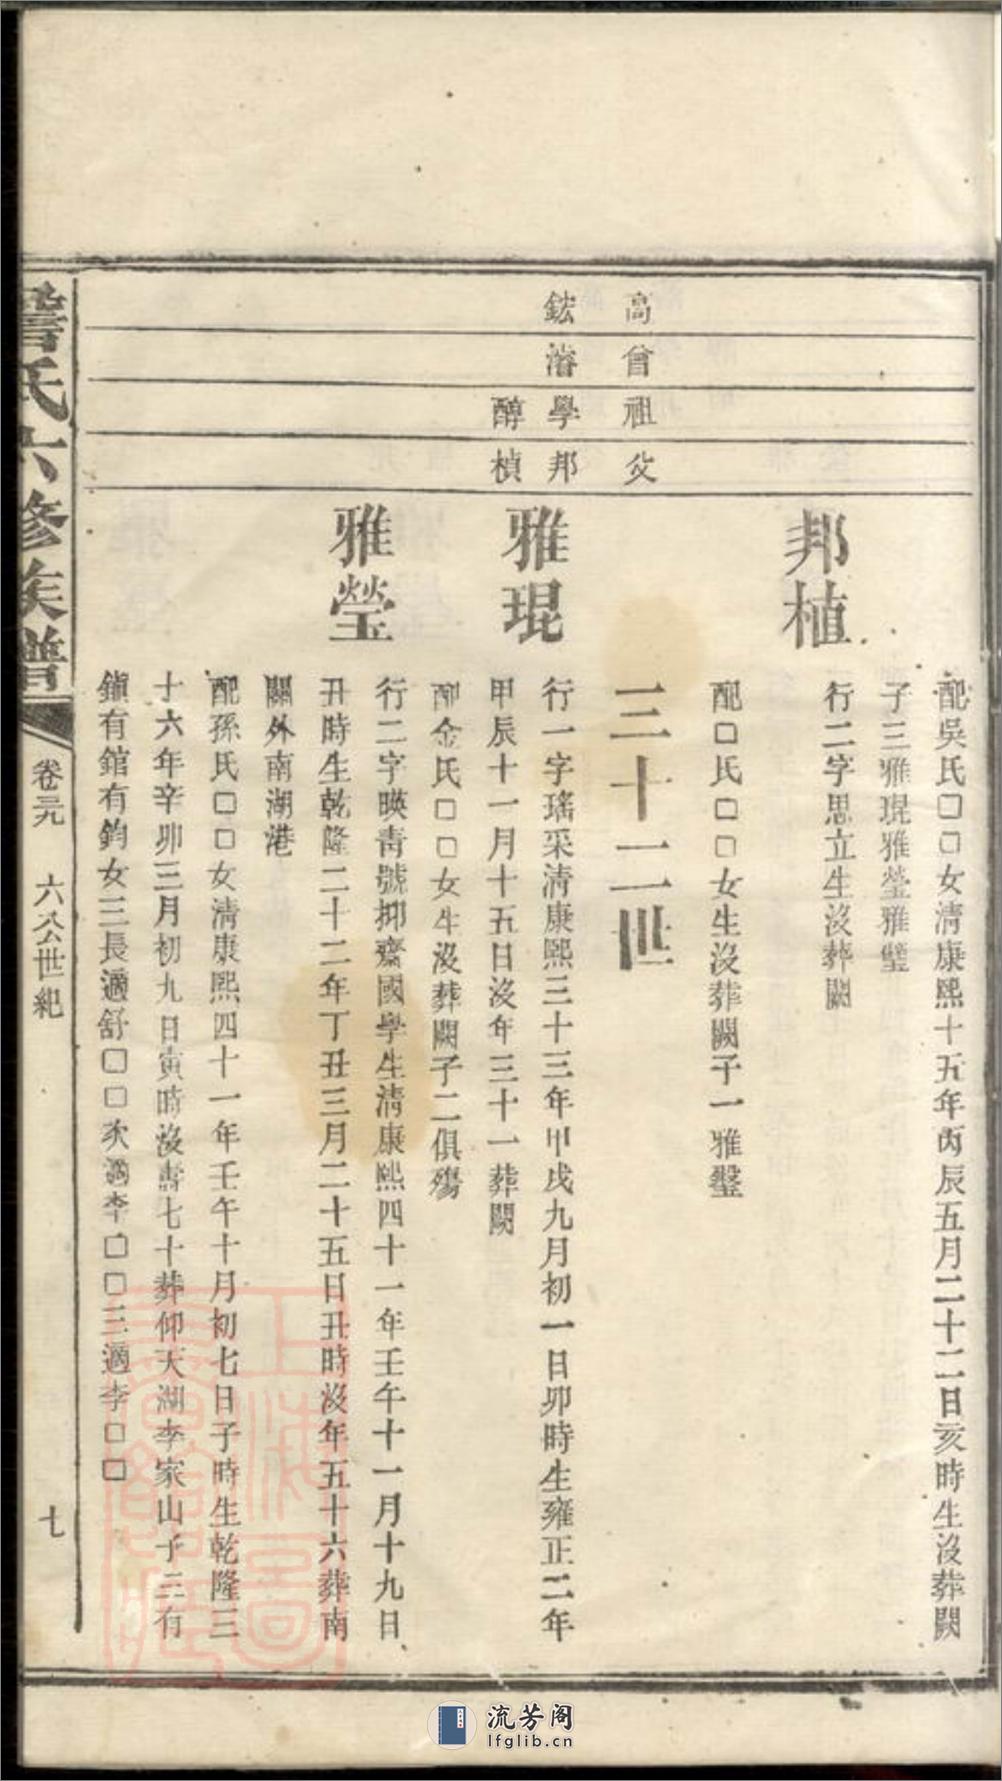 配吳氏□□女淸康熙十五年丙辰五月二十二日亥時生沒葬闕
子三雅琨雅瑩雅璧
邦植
行二字思立生沒葬闕
配□氏□□女生沒葬闕子一雅璽
三十二世
高曾祖父
鋐濬學邦
醇楨
雅琨
行一字瑤采淸康熙三十三年甲戌九月初一日卯時生雍正二年
甲辰十一月十五日沒年三十一葬闕
配金氏□□女生沒葬闕子二俱殤
雅瑩
行二字暎靑號抑齋國學生淸康熙四十一年壬午十一月十九日
丑時生乾隆二十二年丁丑三月二十五日丑時沒年五十六葬南
關外南湖港
配孫氏□□女淸康熙四十一年壬午十月初七日子時生乾隆三
十六年辛卯三月初九日寅時沒壽七十葬仰天湖李家山子三有
鎭有錧有鈞女三長適舒□□次適李□□三適李□□
氏六修族譜
卷元 六公世紀
七
流芳阁
lfglib.cn